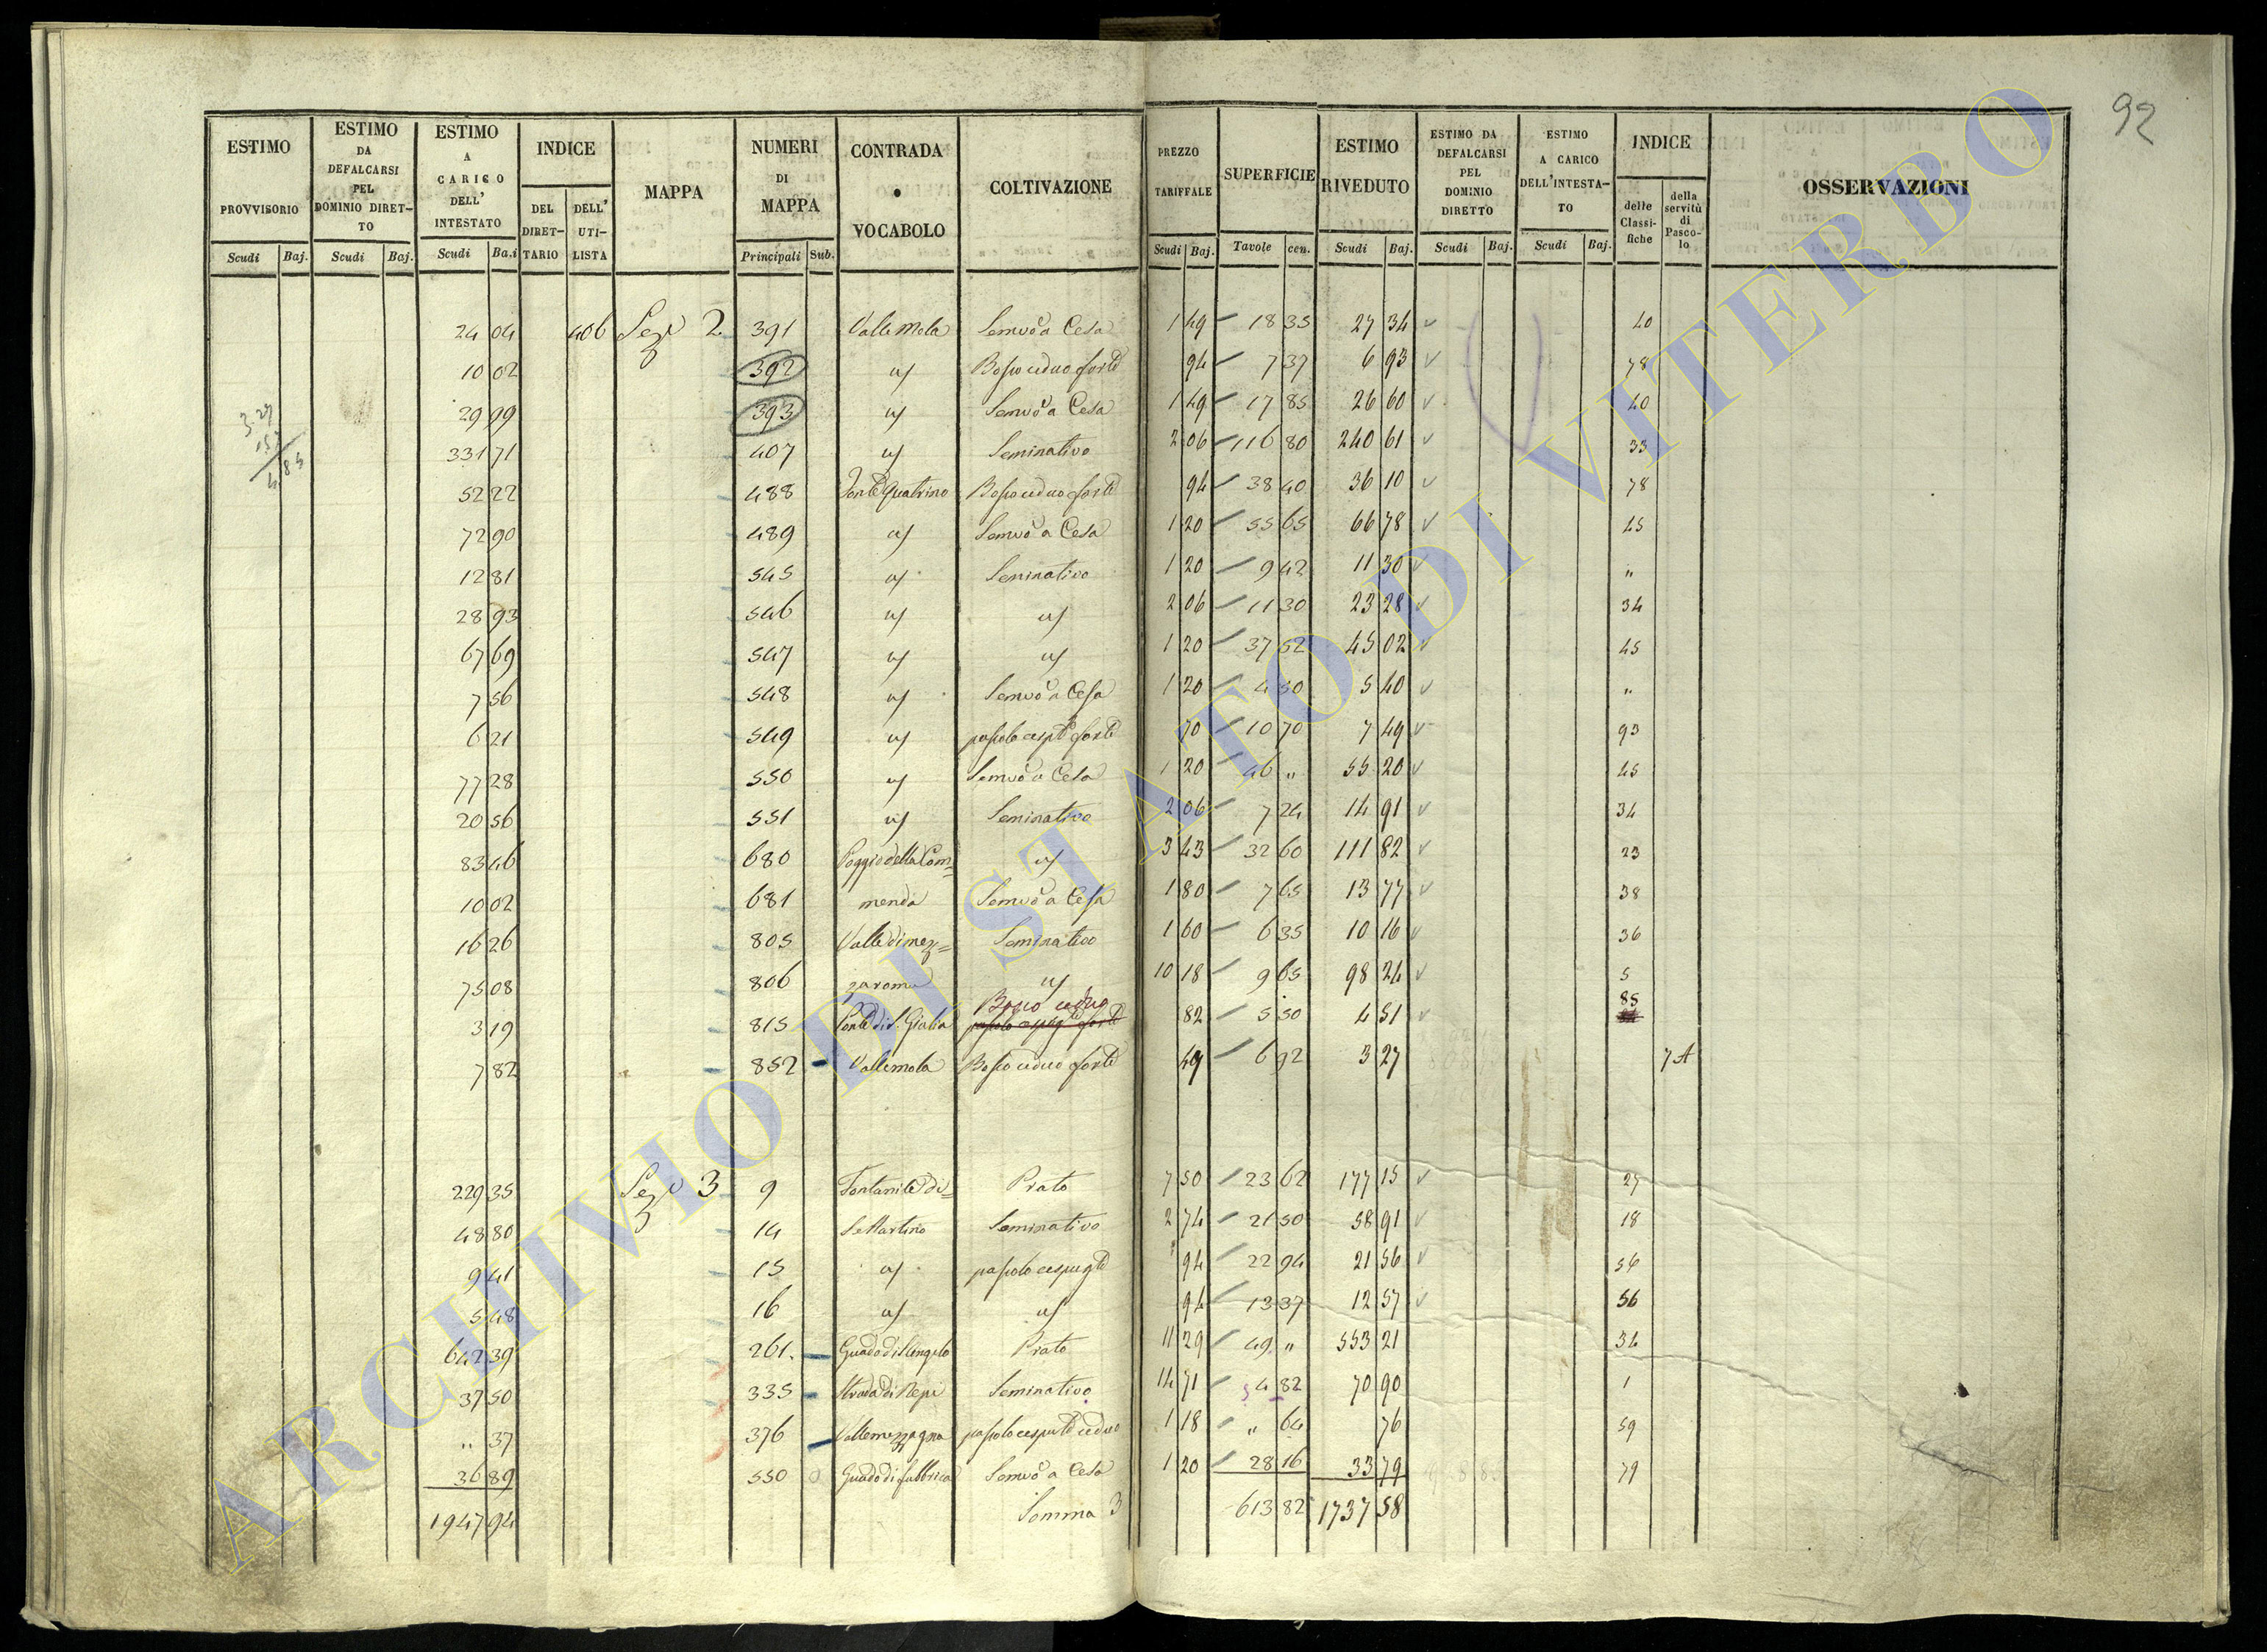 92
ESTIMO PROVVISORIO Scudi Baj. | ESTIMO DA DEFALCARSI PEL DOMINIO DIRETTO Scudi Baj. | ESTIMO A CARICO DELL' INTESTATO Scudi Ba.i | INDICE DEL DIRETTARIO DELL' UTILISTA | MAPPA | NUMERI DI MAPPA Principali Sub. | CONTRADA o VOCABOLO | COLTIVAZIONE | PREZZO TARIFFALE Scudi Baj. | SUPERFICIE Tavole cen. | ESTIMO RIVEDUTO Scudi Baj. | ESTIMO DA DEFALCARSI PEL DOMINIO DIRETTO Scudi Baj. | ESTIMO A CARICO DELL'INTESTATO Scudi Baj. | INDICE delle Classifiche della servitù di Pascolo | OSSERVAZIONI
24 04 406 Sez.e 2 391 Valle Mola Semvo a Cesa 1 49 18 35 27 34 40
10 02 392 a/ Bosco ceduo forte 94 7 37 6 93 78
29 99 393 a/ Semvo a Cesa 1 49 17 85 26 60 40
331 71 407 a/ Seminativo 2 06 116 80 240 61 33
52 22 488 Fonte Quatrino Bosco ceduo forte 94 38 40 36 10 78
72 90 489 a/ Semvo a Cesa 1 20 55 65 66 78 45
12 81 545 a/ Seminativo 1 20 9 42 11 30 "
28 93 546 a/ a/ 2 06 11 30 23 28 34
67 69 547 a/ a/ 1 20 37 52 45 02 45
7 56 548 a/ Semvo a Cesa 1 20 4 50 5 40 "
6 21 549 a/ pascolo cespto forte 70 10 70 7 49 93
77 28 550 a/ Semvo a Cesa 1 20 46 " 55 20 45
20 56 551 a/ Seminativo 2 06 7 24 14 91 34
83 46 680 Poggio della Com= a/ 3 43 32 60 111 82 23
10 02 681 menda Semvo a Cesa 1 80 7 65 13 77 38
16 26 805 Valle di mez= Seminativo 1 60 6 35 10 16 36
75 08 806 zaroma a/ 10 18 9 65 98 24 5
Bosco ceduo 85
3 19 815 Ponte di S. Giulia pascolo cespug.to forte 82 5 50 4 51
7 82 852 Vallemola Bosco ceduo forte 49 6 92 3 27 7 A
229 35 Sez.e 3 9 Fontanile di= Prato 7 50 23 62 177 15 27
48 80 14 S. Martino Seminativo 2 74 21 50 58 91 18
9 41 15 a/ pascolo cespugto 94 22 94 21 56 56
5 48 16 a/ a/ 94 13 37 12 57 56
642 39 261. Guado di S. Angelo Prato 11 29 49 " 553 21 34
37 50 335 Strada di Nepi Seminativo 14 71 4 82 70 90 1
" 37 376 Vallemezzagna pascolo cesputo ceduo 1 18 " 64 76 59
36 89 550 Guado di fabbrica Semvo a Cesa 1 20 28 16 33 79 79
1947 94 Somma 3 613 82 1737 58
ARCHIVIO DI STATO DI VITERBO